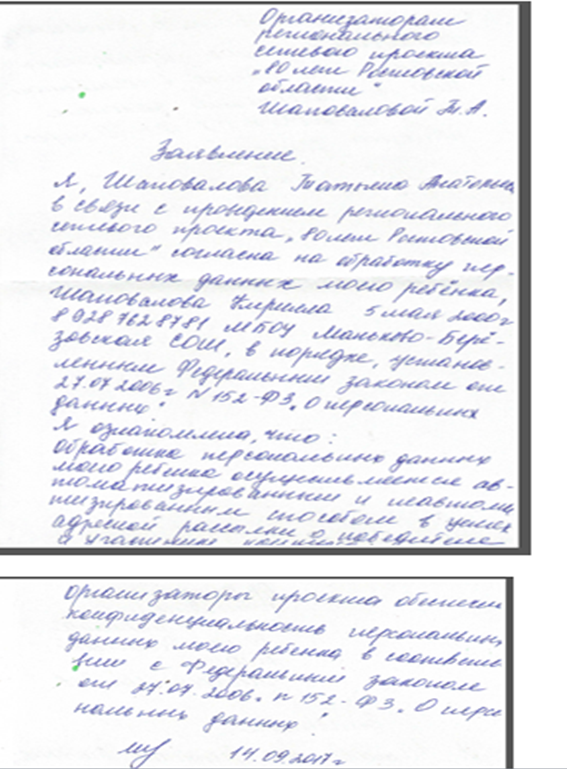 Организаторам
регионального
сетевого проекта
„80 лет Ростовской
области"
Шаповаловой Т.А.
Заявление.
Я, Шаповалова Татьяна Анатольев
в связи с проведением регионального
сетевого проекта „80 лет Ростовской
области" согласна на обработку пер-
сональных данных моего ребёнка,
Шаповалова Кирилла 5 мая 2000г
8 928 762 87 81 МБОУ Маньково-Берё-
зовская СОШ, в порядке, установ-
ленным Федеральным законом от
27.07.2006г N 152-ФЗ „О персональных
данных".
Я ознакомлена, что:
обработка персональных данных
моего ребёнка осуществляется ав-
томатизированным и неавтома
тизированным способом в целях
адресной рассылки о победителе
и участнике
организаторы проекта обеспечи
конфиденциальность персональн
данных моего ребенка в соответс
вии с Федеральным законом
от 27.07.2006. N 152-ФЗ „О персо
нальных данных"
14.09.2017г